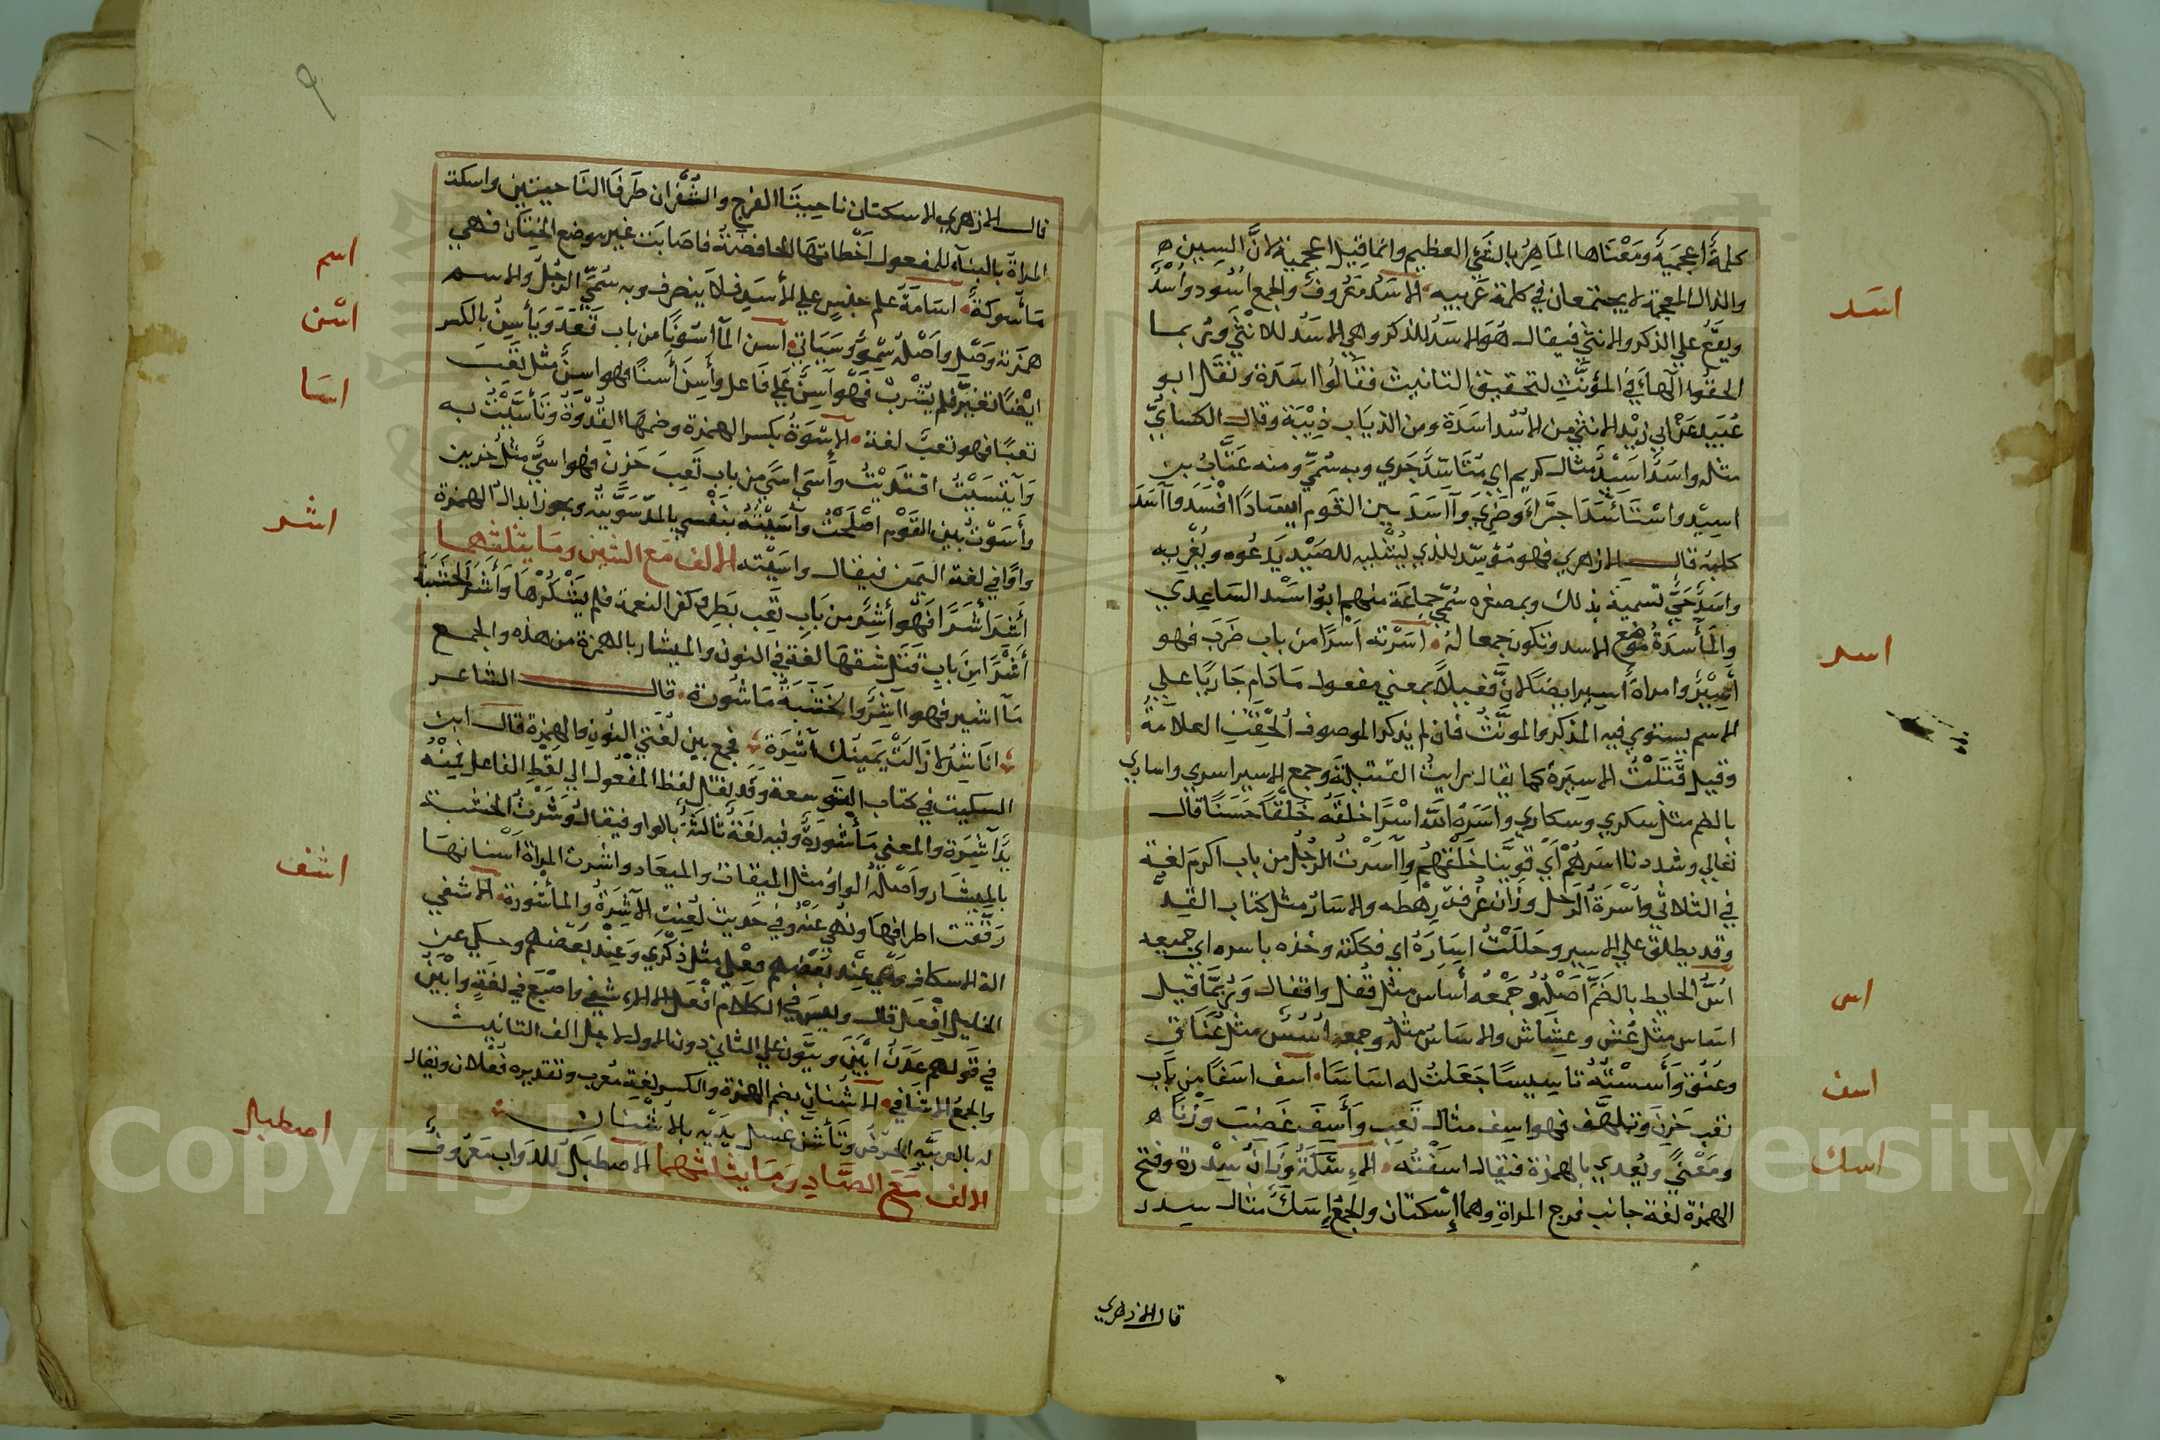 كلمةٌ اعجميةٌ ومَعْنَاها الماهِرُ بالشَّيْ العظيم وانما قيل اعجمية لانَّ السين
والذال المعجمة لا يجتمعان في كلمة عربيه الاسَدُ معروفٌ والجمع اسُود واُسْدٌ
ويَقعُ علي الذكر والانثي فيقال هُوَ الاسَدُ للذكر وهي الاسَدُ للانثَي وربما
الحقوا الهاءَ في المؤنَّثِ لتحقيق التانيث فقالُوا اسَدَة ونقَل ابو
عُبَيد عَنْ ابي زيْد الانثي مِن الاُسْد اسَدَة ومن الذياب ذِيْبَة وقال الكساييُّ
مثله واسَدٌ اسَيْدٌ مثال كريم اي مُتَاَسِّدٌ جَري وبه سُمِّيَ ومنه عَتَّابُ بن
اسِيْد واسْتَأسَدَ اجتَراَ وضَرِيَ وآاسَدَ بين القوم ايسَادًا افْسَدَ وآاسَدَ
كلبَهُ قال الازهري فهو مُؤسِد للذي يُشْلِيه للصَيْد يَدعُوه ويُغْرِيه
واسَدٌ حَيٌّ تسمية بذلك وبمصغره سُمِّي جماعَة منهم ابوُاسَيْد السَاعِدي
والمَأسَدَةُ مَوْضِع الاسد وتكون جمعا لهُ اسَرْته اَسْرًا من باب ضَرَبَ فهو
أسِيْرٌ وامراة أسِير ايضًا لانَّ فَعِيلًا بمعني مفعول مَا دَام جَاريًا علي
الاسم يستوي فيه المذكر والمونَّثُ فان لم يذكر الموصوف اُلْحِقَتِ العلامَةُ
وقيل قَتَلْتُ الاسيرَةَ كما يقال رايتُ القتيلةَ وجمع الاسير اسرَي واسارَي
بالضم مثل سكرَي وسكاري واسَرَهُ اللهُ اسْرًا خلقَهُ خَلْقًا حَسَنًا قال
تعالي وشددنا اسَرهُمْ اَيْ قوَّينا خَلْقهُم وآاسَرْتُ الرّجُل من باب اكرَم لغة
في الثلاثي واُسْرَةُ الرَجُل وزان غرفة رهْطه والاسَارُ مثل كتاب القِدُّ
وقد يطلق علي الاسير وحَلَلْتُ اسِارَهُ اي فككتَهُ وخذه باسره اي جميعه
اُسُّ الحايط بالضَمِّ اَصْلُهُ وجَمْعُه أسَاس مثل قُفْل واقفال وَرُبمَّا قيل
اسَاس مثل عُش وعِشَاش والاسَاسُ مثلُه وجمعه اُسُسٌ مثل عَنَاق
وعُنق وَأَسسْتُهُ تاسِيسًا جَعَلتُ له اسَاسًا اسَف اسَفًا مِن بَاب
تعب حَزِنَ وتلهَّف فهو اسِف مثال تَعِب وَأَسِفَ غَضِبَ وَزْنًا
ومَعْنيً ويُعدي بالهمزة فيقال اسَفْتُه الاِسْكَةُ وِزَانُ سِدْرة وفتح
الهمزة لغة جانب فرج المراةِ وهما اِسْكتَان والجمعُ اِسَكٌ مثال سِدر
قال الازهري
اسَد
اسر
اس
اسف
اسك
٩
قال الازهري الاسكتان ناحيتَا الفرج والشُّفْران طَرَفَا الناحيتَين واسكت
المراة بالبنآء للمفعول اَخْطاتهَا الخافِضَةُ فاصَابَت غير موضع الخِتَان فهي
مَأسوكةٌ اسَامَةُ علم جنسٍ علي الأسَدِ فلا ينصرف وبه سُمِّيَ الرجُلُ والاسم
همزته وصْل واَصْلهُ سُمْوٌ وسَيَاتي اسن المآ اسُونًا من باب قعَدَ ويَأسِنُ بالكسر
ايضًا تغيَّر فلم يشرَبْ فهو آسِنٌ علي فَاعل وأَسِنَ أسَنًا فهو اسِنٌ مثل تَعِبَ
تعبًا فهو تَعِبٌ لغة الإسْوَةُ بكسر الهمزة وضمهَا القُدْوَةُ وتَأسَّيْتُ به
وَأيتَسَيْتُ اقتدَيْتُ وأسَيَ اسَيً من باب تَعِبَ حَزِن فهو اسَيٌّ مثل حَزِين
وأسَوْتُ بين القَوْم اصْلَحْتُ وآسَيْتُهُ بنَفْسِي بالمدّ سَوَّيتُه ويجوز ابدالُ الهمزة
واوًا في لغة اليَمن فيقال واسَيْته الالف مَع الشين ومَا يثلثهما
أشِرَ أشَرًا فَهُو أَشِرٌ مِن بَابِ تعِب بَطِر وكفر النعمة فلم يشْكُرْهَا وأَشَر الخشَبَة
أشْرًا مِن بَاب قتَل شقهَا لغة في النون والميشَار بالهمزة من هذه والجمع
مَآاشير فهو آاشِرٌ والخَشَبَة مَاشُورة قال الشاعر
انَاشِرُ لا زَالَتْ يَمينك آشِرَة فجمع بين لغتي النون والهمزة قال ابن
السكيت في كتاب التوسعة وقد يقال لفظ المفعول الي لفظِ الفاعل فمِنْهُ
يَدٌ آشِرَة والمعني مَأشُورَةٌ وفيه لغةٌ ثالثَةٌ بالواو فيقال وَشَرْتُ الخشبة
بالميشَار واَصْلُهُ الواوُ مثل الميقات والميعاد واشرت المراة اَسْنانهَا
رَقَّقت اطرافهَا ونُهِيَ عَنْهُ وفي حَديث لُعِنَتِ الآشِرَةُ والمأشُورة الاشفي
الة الاسكاف وهي عِنْد بَعْضهم فِعْلَي مثل ذِكْرَي وَعِنْد بَعْضهم وحكي عن
الخليل افعَل قال وليس في الكلام افْعَل الا الاشفي واصْبَع في لغةٍ وابْيَنُ
في قولهم عَدَنُ ابْيَنَ وينَون علي الثاني دون الاول لاجل الف التانيث
والجمعُ الاشَافي الاشْنان بضم الهمزة والكسر لغةٌ مُعرب وتقديره فُعْلان ويقال
له بالعربيَّةِ الحُرُضُ وتَأشَّنَ غسَل يدَيْهِ بالاُشْنَان
الالف مَعَ الصَّاد ومَا يثلثهما الاصطَبلُ للدَواب مَعْروفٌ
اسم
اسن
اسَا
اشر
اشف
اصطبل
Copyright © King Saud University